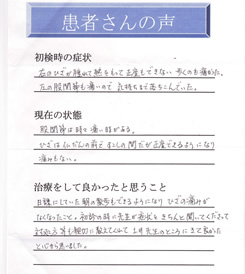 患者さんの声
初検時の症状
右のひざが腫れて熱をもって正座もできない 歩くのも痛かった。
左の股関節も痛いので 気持ちまで落ちこんでいた。
現在の状態
股関節は時々痛い時がある。
ひざは仏だんの前で少しの間だが正座できるようになり
痛みもない。
治療をして良かったと思うこと
日課にしていた朝の散歩もできるようになり ひざの痛みが
なくなったこと。初診の時に先生が症状をきちんと聞いてくださって
対処方も親切に教えてくれて 先生のところにきて良かった
と心から思いました。